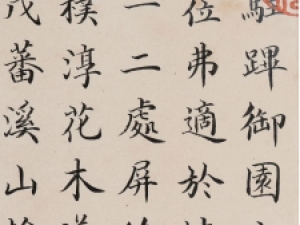 駐蹕御園
位弗適於
一二處屏
樸淳花木
茂蕃溪山